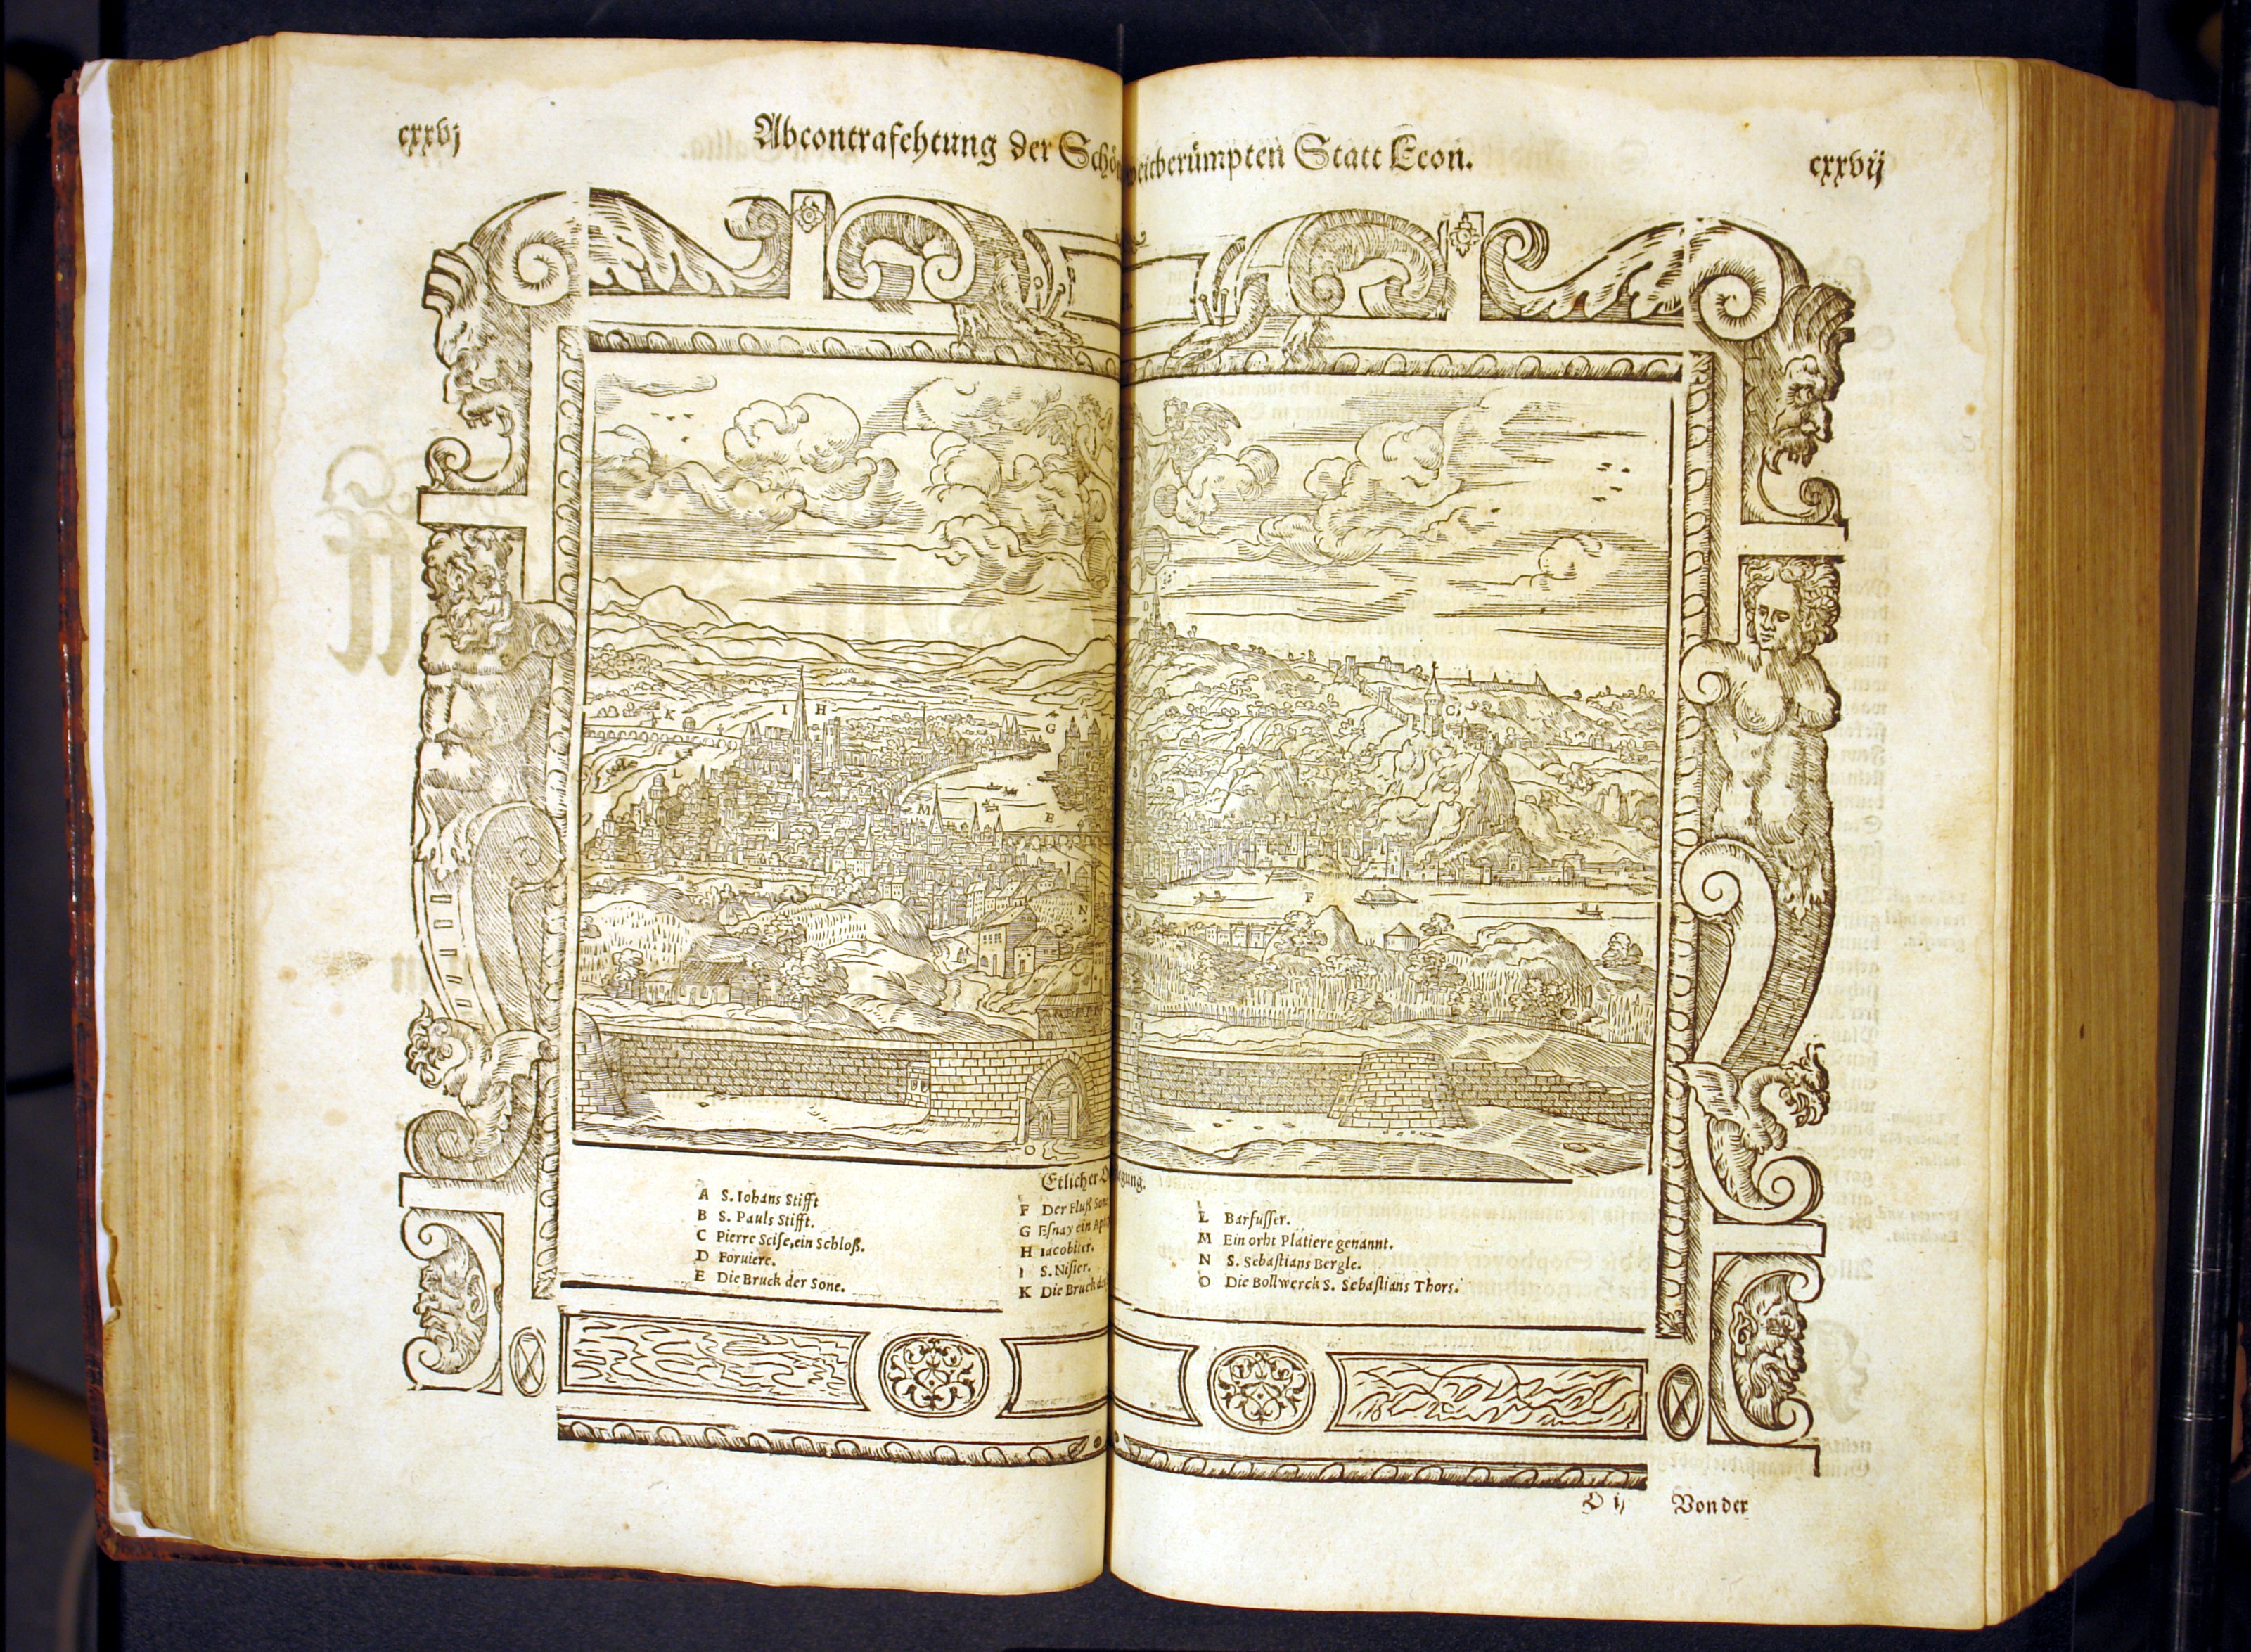 cxxvj
Abcontrafehtung der Schön
weitberümpten Statt Leon.
cxxvij
K
I
H
G
A
L
M
E
N
O
D
C
B
F
Etlicher
gung.
A S. Iohans Stifft
B S. Pauls Stifft.
C Pierre Scise, ein Schloß.
D Foruiere.
E Die Bruck der Sone.
F Der Fluß Sone
G Esnay ein Apt
H Iacobiter.
I S. Nisier.
K Die Bruck des
L Barfusser.
M Ein orht Platiere genannt.
N S. Sebastians Bergle.
O Die Bollwerck S. Sebastians Thors.
O ij
Von der